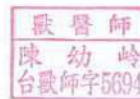 獸醫師
陳幼岭
台獸師字5694